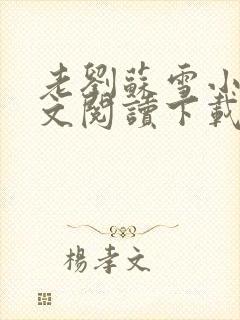 老劉蘇雪小
文閱讀下載
楊孝文